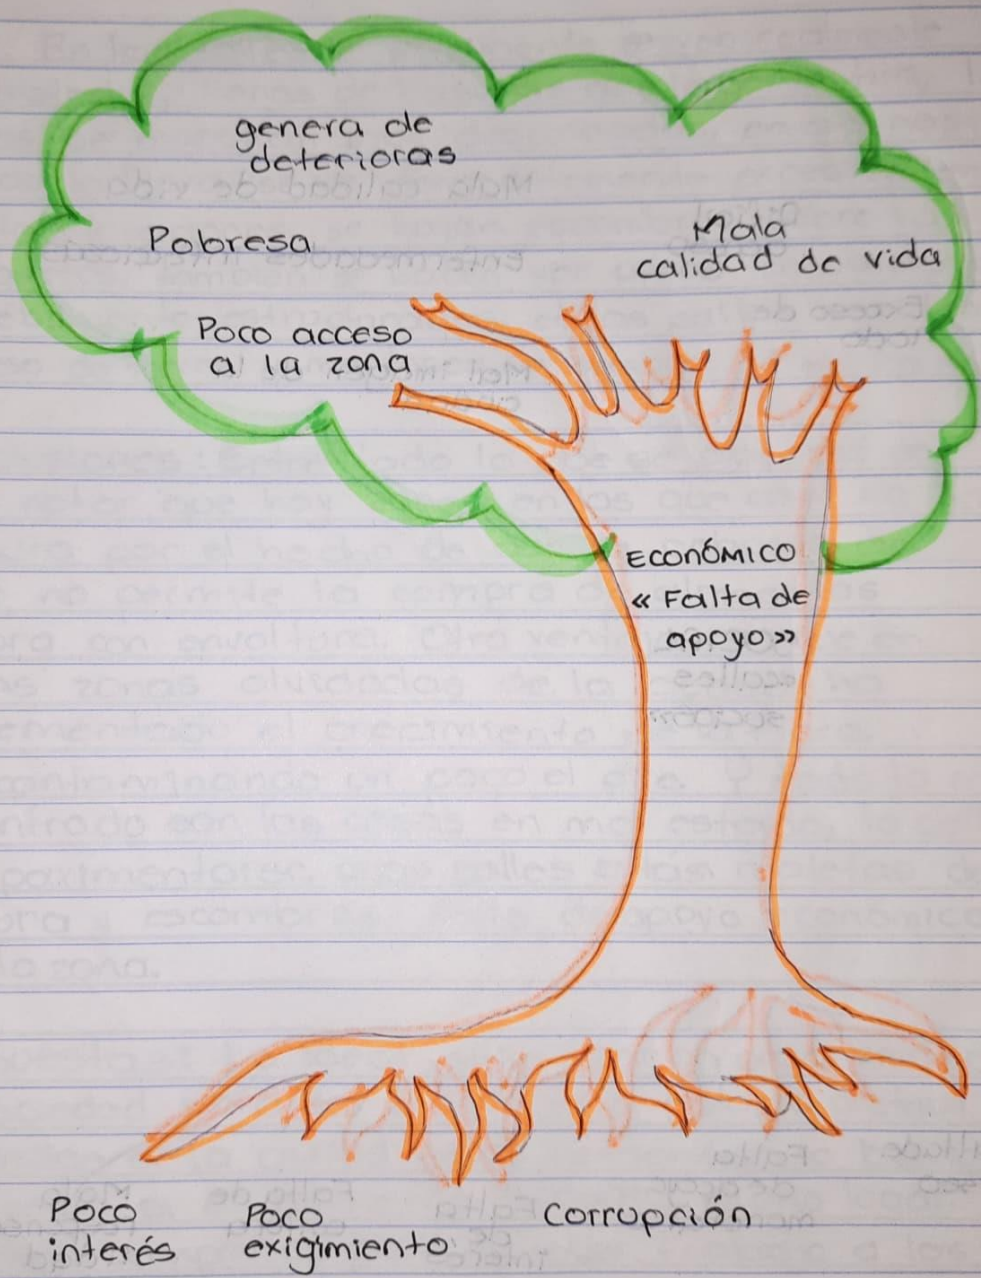 genera de
deterioras
Pobresa
Mala
calidad de vida
Poco acceso
a la zona
ECONÓMICO
« Falta de
apoyo »
Poco
interés
Poco
exigimiento
Corrupción